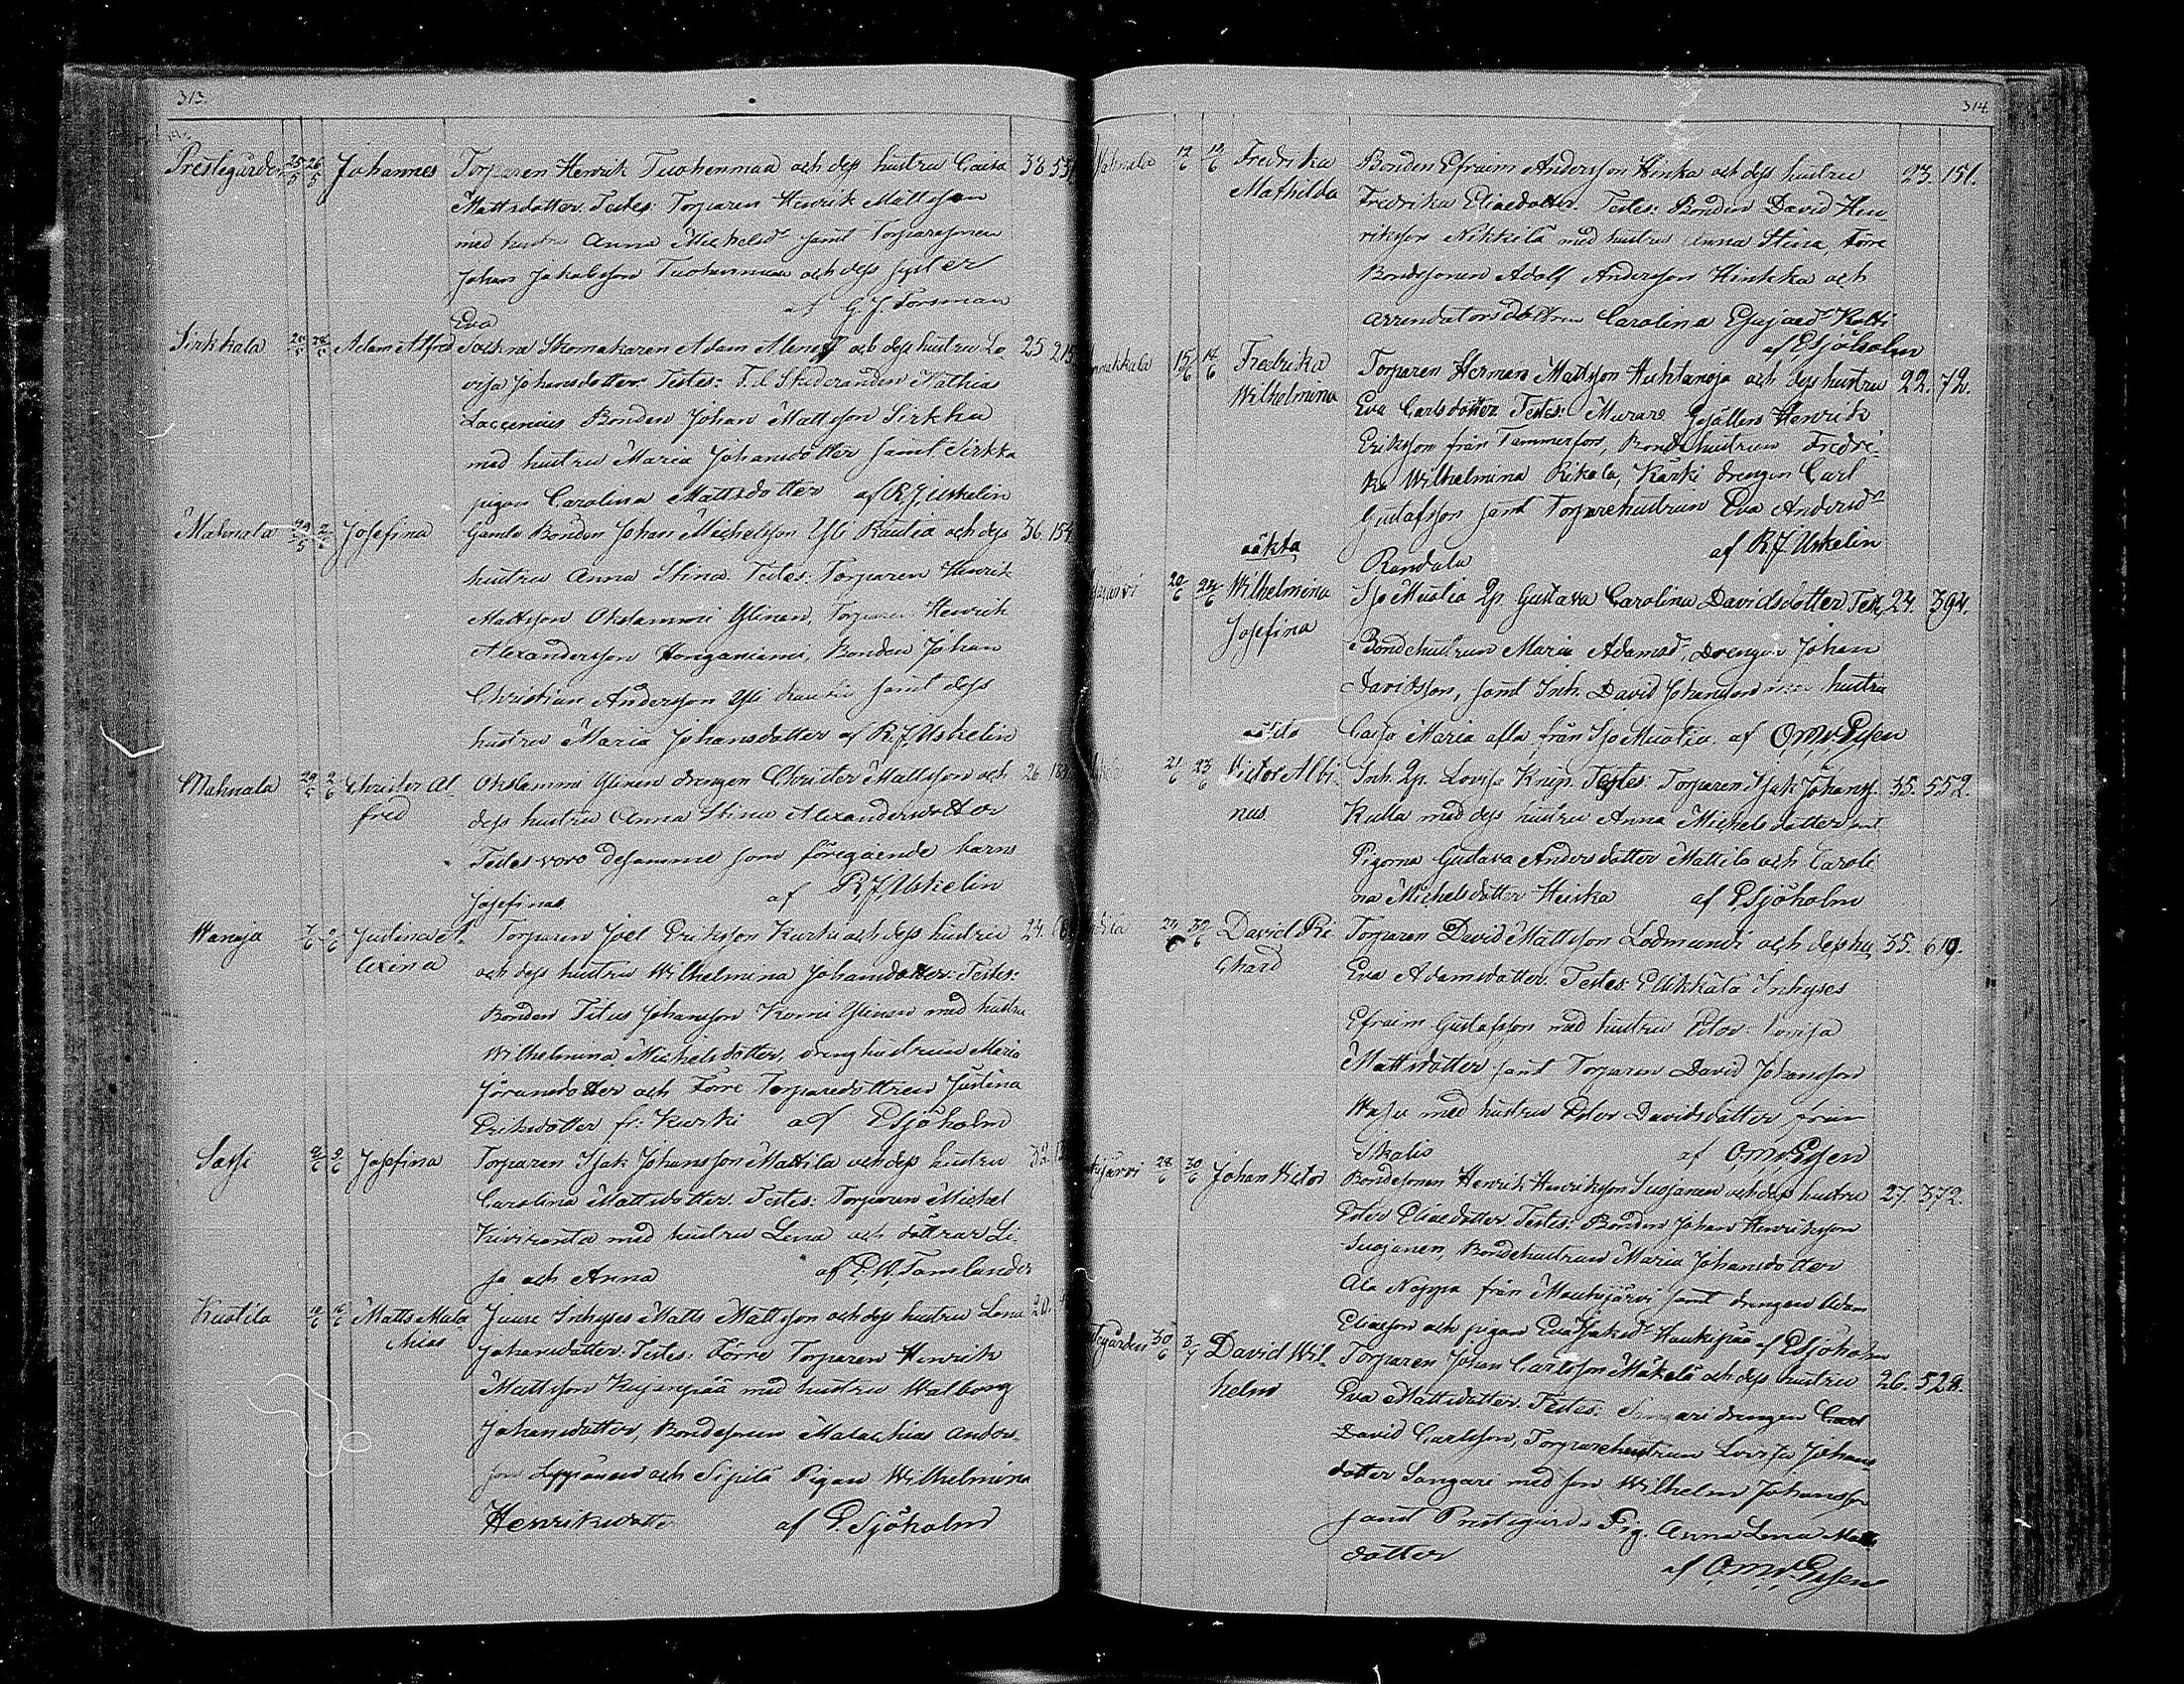 313.
Prestegården 25/5 26/5 Johannes Torparen Henrik Tuohenmaa och dess hustru Caisa 38. 53
Mattsdotter. Testes: Torparen Henrik Mattsson
med hustru Anna Michelsd:r samt Torparesonen
Johan Jakobsson Tuohenmaa och dess syster
Eva af G. J. Forsman
Sirkkala Adam Alfred Sockne Skomakaren Adam och dess hustru Lo 25 215
visa Johansdotter. Testes: Mathias
Laccenius Bonden Johan Mattsson Sirkka
med hustru Maria Johansdotter samt Sirkka
pigan Carolina Mattsdotter af R. J. Uskelin
Mahnala Josefina Gamle Bonden Johan Michelsson Yli Rautia och dess 36. 154
hustru Anna Stina. Testes: Torparen Henrik
Mattsson Okslammi Ylinen, Torparen Henrik
Alexandersson Honganiemi, Bonden Johan
Christian Andersson Yli Rautia samt dess
hustru Maria Johansdotter af R. J. Uskelin
Mahnala 29/5 2/6 Christer Al- Okslammi Ylinen drengen Christer Mattsson och 26.
fred dess hustru Anna Stina Alexandersdotter
Testes voro desamme som föregående barns
Josefinas af R. J. Uskelin
Wanaja Justina Al- Torparen Joel Eriksson Kurki och dess hustru 24.
exina och dess hustru Wilhelmina Johansdotter. Testes:
Bonden Titus Johansson Korri Ylinen med hustru
Wilhelmina Michelsdotter, dreng hustrun Maria
Göransdotter och Förre Torparedottren Justina
Eriksdotter fr: Kurki af P. Sjöholm
Sasi 9/6 Josefina Torparen Isak Johansson Mattila och dess hustru 32.
Carolina Mattsdotter. Testes: Torparen Michel
Kiviranta med hustru Lena och döttrar Li-
sa och Anna af P. W. Tamlander
Kustila 16/6 Matts Mala- Juuse Inhyses Matts Mattsson och dess hustru Lena 20.
chias Johansdotter. Testes: Förre Torparen Henrik
Mattsson Kujanpää med hustru Walborg
Johansdotter, Bondesonen Malachias Anders-
son och Sipilä Pigan Wilhelmina
Henriksdotter af P. Sjöholm
314.
Mahnala 12/6 Fredrika Bonden Efraim Andersson Hinka och dess hustru 23. 151.
Mathilda Fredrika Eliaedotter. Testes: Bonden David Hen
riksson Nikkilä med hustru Anna Stina, Förre
Bondesonen Adolf Andersson Hinkka och
arrendatorsdottren Carolina Esajaed:r
af P. Sjöholm
makkala 15/6 Fredrika Torparen Herman Mattsson Huhtanoja och dess hustru 22. 72.
Wilhelmina Eva Carlsdotter. Testes: Murare Gesällen Henrik
Eriksson från Tammerfors, Bondehustrun Fredri-
ka Wilhelmina Rikala, Kärki drengen Carl
Gustafsson samt Torparehustrun Eva Andersd:r
Randala af R. J. Uskelin
oäkta
20/6 24/6 Wilhelmina Gustava Carolina Davidsdotter Test. 24. 394.
Josefina Bondehustrun Maria Adamsd:r, Drengen Johan
Davidsson, samt Inh. David Johansson hustru
Caisa Maria alla från af O. M. v. Essen
oäkta
21/6 23/6 Victor Albi- Inh. Qp. Lovisa Knip. Testes: Torparen Isak Johanss. 35. 552.
nus Kulla med dess hustru Anna Michelsdotter
Pigorna Gustava Andersdotter Mattila och Caroli
na Michelsdotter Heiska af P. Sjöholm
30/6 David Ri- Torparen David Mattsson Lodmundi och dess hu 35. 619.
chard Eva Adamsdotter. Testes: Inhyses
Efraim Gustafsson med hustru Lovisa
Mattsdotter samt Torparen David Johansson
med hustru Davidsdotter från
Ikalis af O. M. v. Essen
järvi 28/6 30/6 Johan Victor Bondesonen Henrik Henriksson Suojanen och dess hustru 27. 372.
Eliaedotter. Testes: Bonden Johan Henriksson
Suojanen, Bondehustrun Maria Johansdotter
Ala Nappa från Mouhijärvi samt drengen Adam
Eliasson och pigan Eva Isaksd:r Haukipää af P. Sjöholm
gården 30/6 David Wil- Torparen Johan Carlsson Mäkelä och dess hustru 26. 528.
helm Eva Mattsdotter. Testes: drengen Carl
David Carlsson, Torparehustrun Lovisa Johans-
dotter Sangari med son Wilhelm Johansson
samt Prestegårds Pig. Anna Lena Matts
dotter af O. M. v. Essen